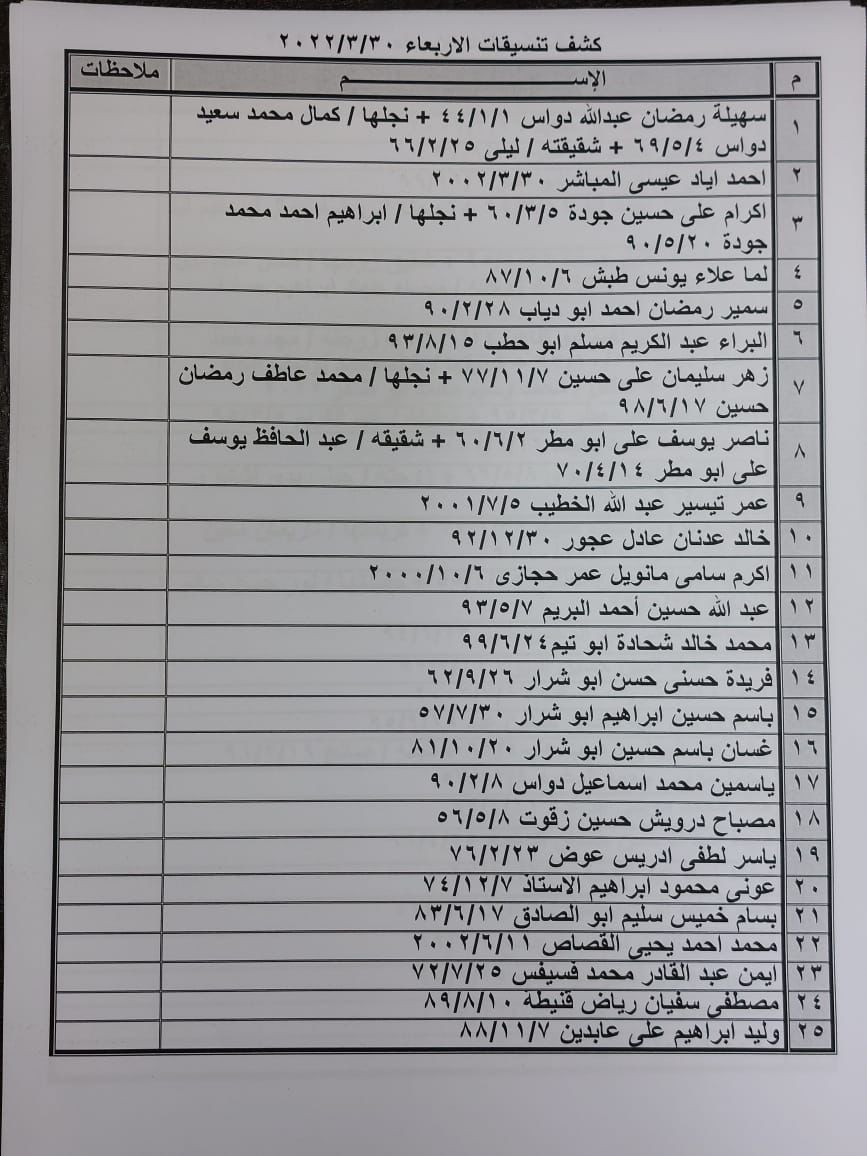 كشف تنسيقات الاربعاء ٢٠٢٢/٣/٣٠
م الإســـم ملاحظات
١ سهيلة رمضان عبدالله دواس ٤٤/١/١ + نجلها / كمال محمد سعيد
دواس ٦٩/٥/٤ + شقيقته / ليلى ٦٦/٢/٢٥
٢ احمد اياد عيسى المباشر ٢٠٠٢/٣/٣٠
٣ اكرام على حسين جودة ٦٠/٣/٥ + نجلها / ابراهيم احمد محمد
جودة ٩٠/٥/٢٠
٤ لما علاء يونس طبش ٨٧/١٠/٦
٥ سمير رمضان احمد ابو دياب ٩٠/٢/٢٨
٦ البراء عبد الكريم مسلم ابو حطب ٩٣/٨/١٥
٧ زهر سليمان على حسين ٧٧/١١/٧ + نجلها / محمد عاطف رمضان
حسين ٩٨/٦/١٧
٨ ناصر يوسف على ابو مطر ٦٠/٦/٢ + شقيقه / عبد الحافظ يوسف
على ابو مطر ٧٠/٤/١٤
٩ عمر تيسير عبد الله الخطيب ٢٠٠١/٧/٥
١٠ خالد عدنان عادل عجور ٩٢/١٢/٣٠
١١ اكرم سامى مانويل عمر حجازى ٢٠٠٠/١٠/٦
١٢ عبد الله حسين أحمد البريم ٩٣/٥/٧
١٣ محمد خالد شحادة ابو تيم ٩٩/٦/٢٤
١٤ فريدة حسنى حسن ابو شرار ٦٢/٩/٢٦
١٥ باسم حسين ابراهيم ابو شرار ٥٧/٧/٣٠
١٦ غسان باسم حسين ابو شرار ٨١/١٠/٢٠
١٧ ياسمين محمد اسماعيل دواس ٩٠/٢/٨
١٨ مصباح درويش حسين زقوت ٥٦/٥/٨
١٩ ياسر لطفى ادريس عوض ٧٦/٢/٢٣
٢٠ عونى محمود ابراهيم الاستاذ ٧٤/١٢/٧
٢١ بسام خميس سليم ابو الصادق ٨٣/٦/١٧
٢٢ محمد احمد يحيى القصاص ٢٠٠٢/٦/١١
٢٣ ايمن عبد القادر محمد فسيفس ٧٢/٧/٢٥
٢٤ مصطفى سفيان رياض قنيطة ٨٩/٨/١٠
٢٥ وليد ابراهيم على عابدين ٨٨/١١/٧